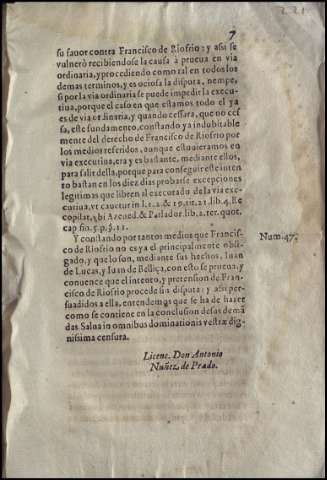 221
7
su fauor contra Francisco de Riofrio: y assi se
vulnerò recibiendose la causa à prueua en via
ordinaria, y procediendo como tal en todos los
demas terminos, y es ociosa la disputa, nempe,
si por la via ordinaria se puede impedir la execu-
tiua, porque el caso en que estamos todo el ya
es de via ordinaria, y quando cessara, que no ces-
sa, este fundamento, constando ya indubitable
mente del derecho de Francisco de Riofrio por
los medios referidos, aunque estuuieramos en
via executiua, era y es bastante, mediante ellos,
para salir della, porque para conseguir este inten
to bastan en los diez dias probarse excepciones
legitimas que libren al executado de la via exe-
cutiua, vt cauetur in l.1.2. & 19. tit. 21. lib. 4. Re
copilat. vbi Azeued. & Parlador. lib. 2. rer. quot.
cap. fin. 5. p. §. 11.
Y constando por tantos medios que Francis-
co de Riofrio no es ya el principalmente obli-
gado, y que lo son, mediante sus hechos, Iuan
de Lucas, y Iuan de Belliça, con esto se prueua, y
conuence que el intento, y pretension de Fran-
cisco de Riofrio procede sin disputa: y assi per-
suadidos a ella, entendemos que se ha de hazer
como se contiene en la conclusion destas demã
das Salua in omnibus dominationis vestræ dig-
nissima censura.
Num. 47.
Licenc. Don Antonio
Nuñez de Prado.